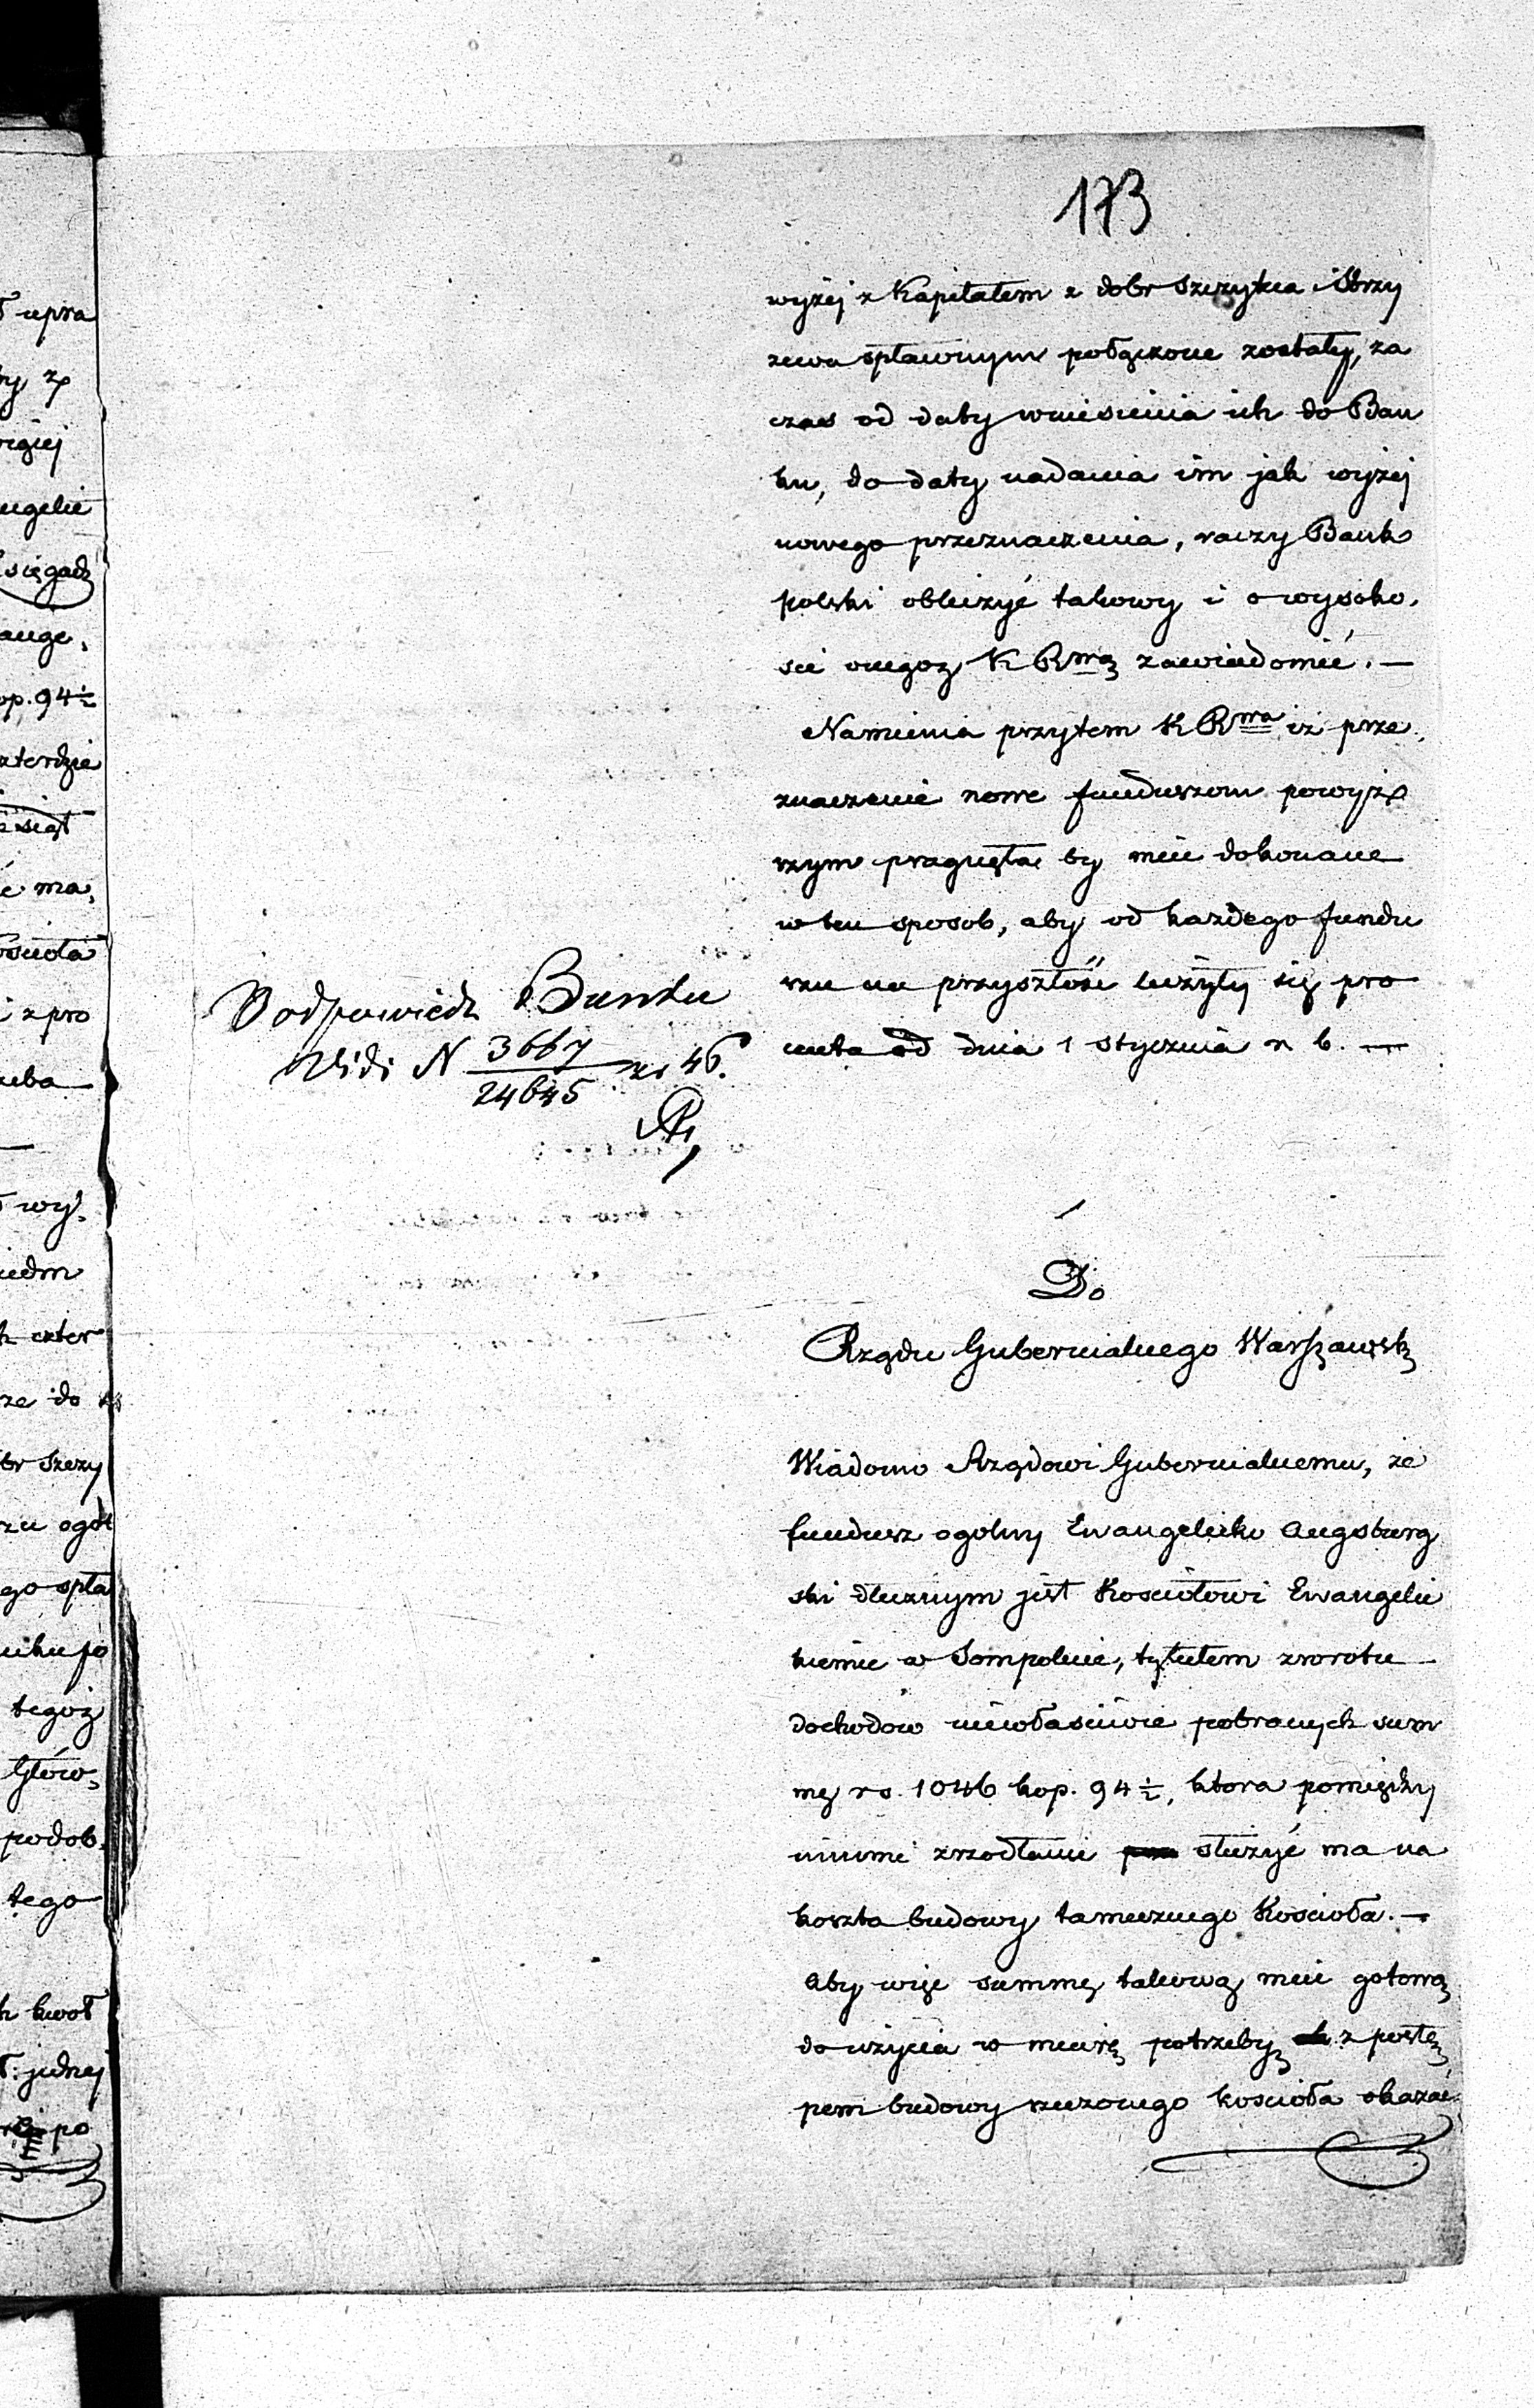 173
wyżej z Kapitałem z dobr Szczytka i Skrzy
newa spławnym połączone zostały, za
czas od daty wniesienia ich do Ban
ku, do daty nadania im jak wyżej
nowego przeznaczenia, raczy Bank
polski obliczyć takowy i o wysoko,
sci onegoż K Rwą zawiadomić. —
Namienia przytem K Rwa iż prze,
znaczenie nowe funduszom powyż
szym pragnęła by mieć dokonane
w ten sposob, aby od każdego fundu
szu na przyszłość liczyły się pro
centa od dnia 1 stycznia r b. —
Odpowiedz Banku
Vidi N 3667/24645 z r 46.
Do
Rządu Gubernialnego Warszawsk
Wiadomo Rządowi Gubernialnemu, że
fundusz ogolny Ewangelicko Augsburg
ski dłużnym jest Kosciołowi Ewangelic
kiemu w Sompolnie, tytułem zwrotu
dochodów niewłaściwie pobranych sum
mę rs. 1046 kop. 94 ½, ktora pomiędzy
innemi zrzodłami służyć ma na
koszta budowy tamecznego Kościoła. —
Aby więc summę takową mieć gotową
do użycia w miarę potrzeby z postę,
pem budowy rzeczonego kościoła okazać
ł upra
by z
ngelic
Księgadz
ange,
op. 94 ½
czterdzie
ma,
ościoła
i z pro
wy,
iedm
czter
ze do
br Szczy
szu ogól
go spła
tegoż
Głów,
podob,
tego
kwot
jednej
po